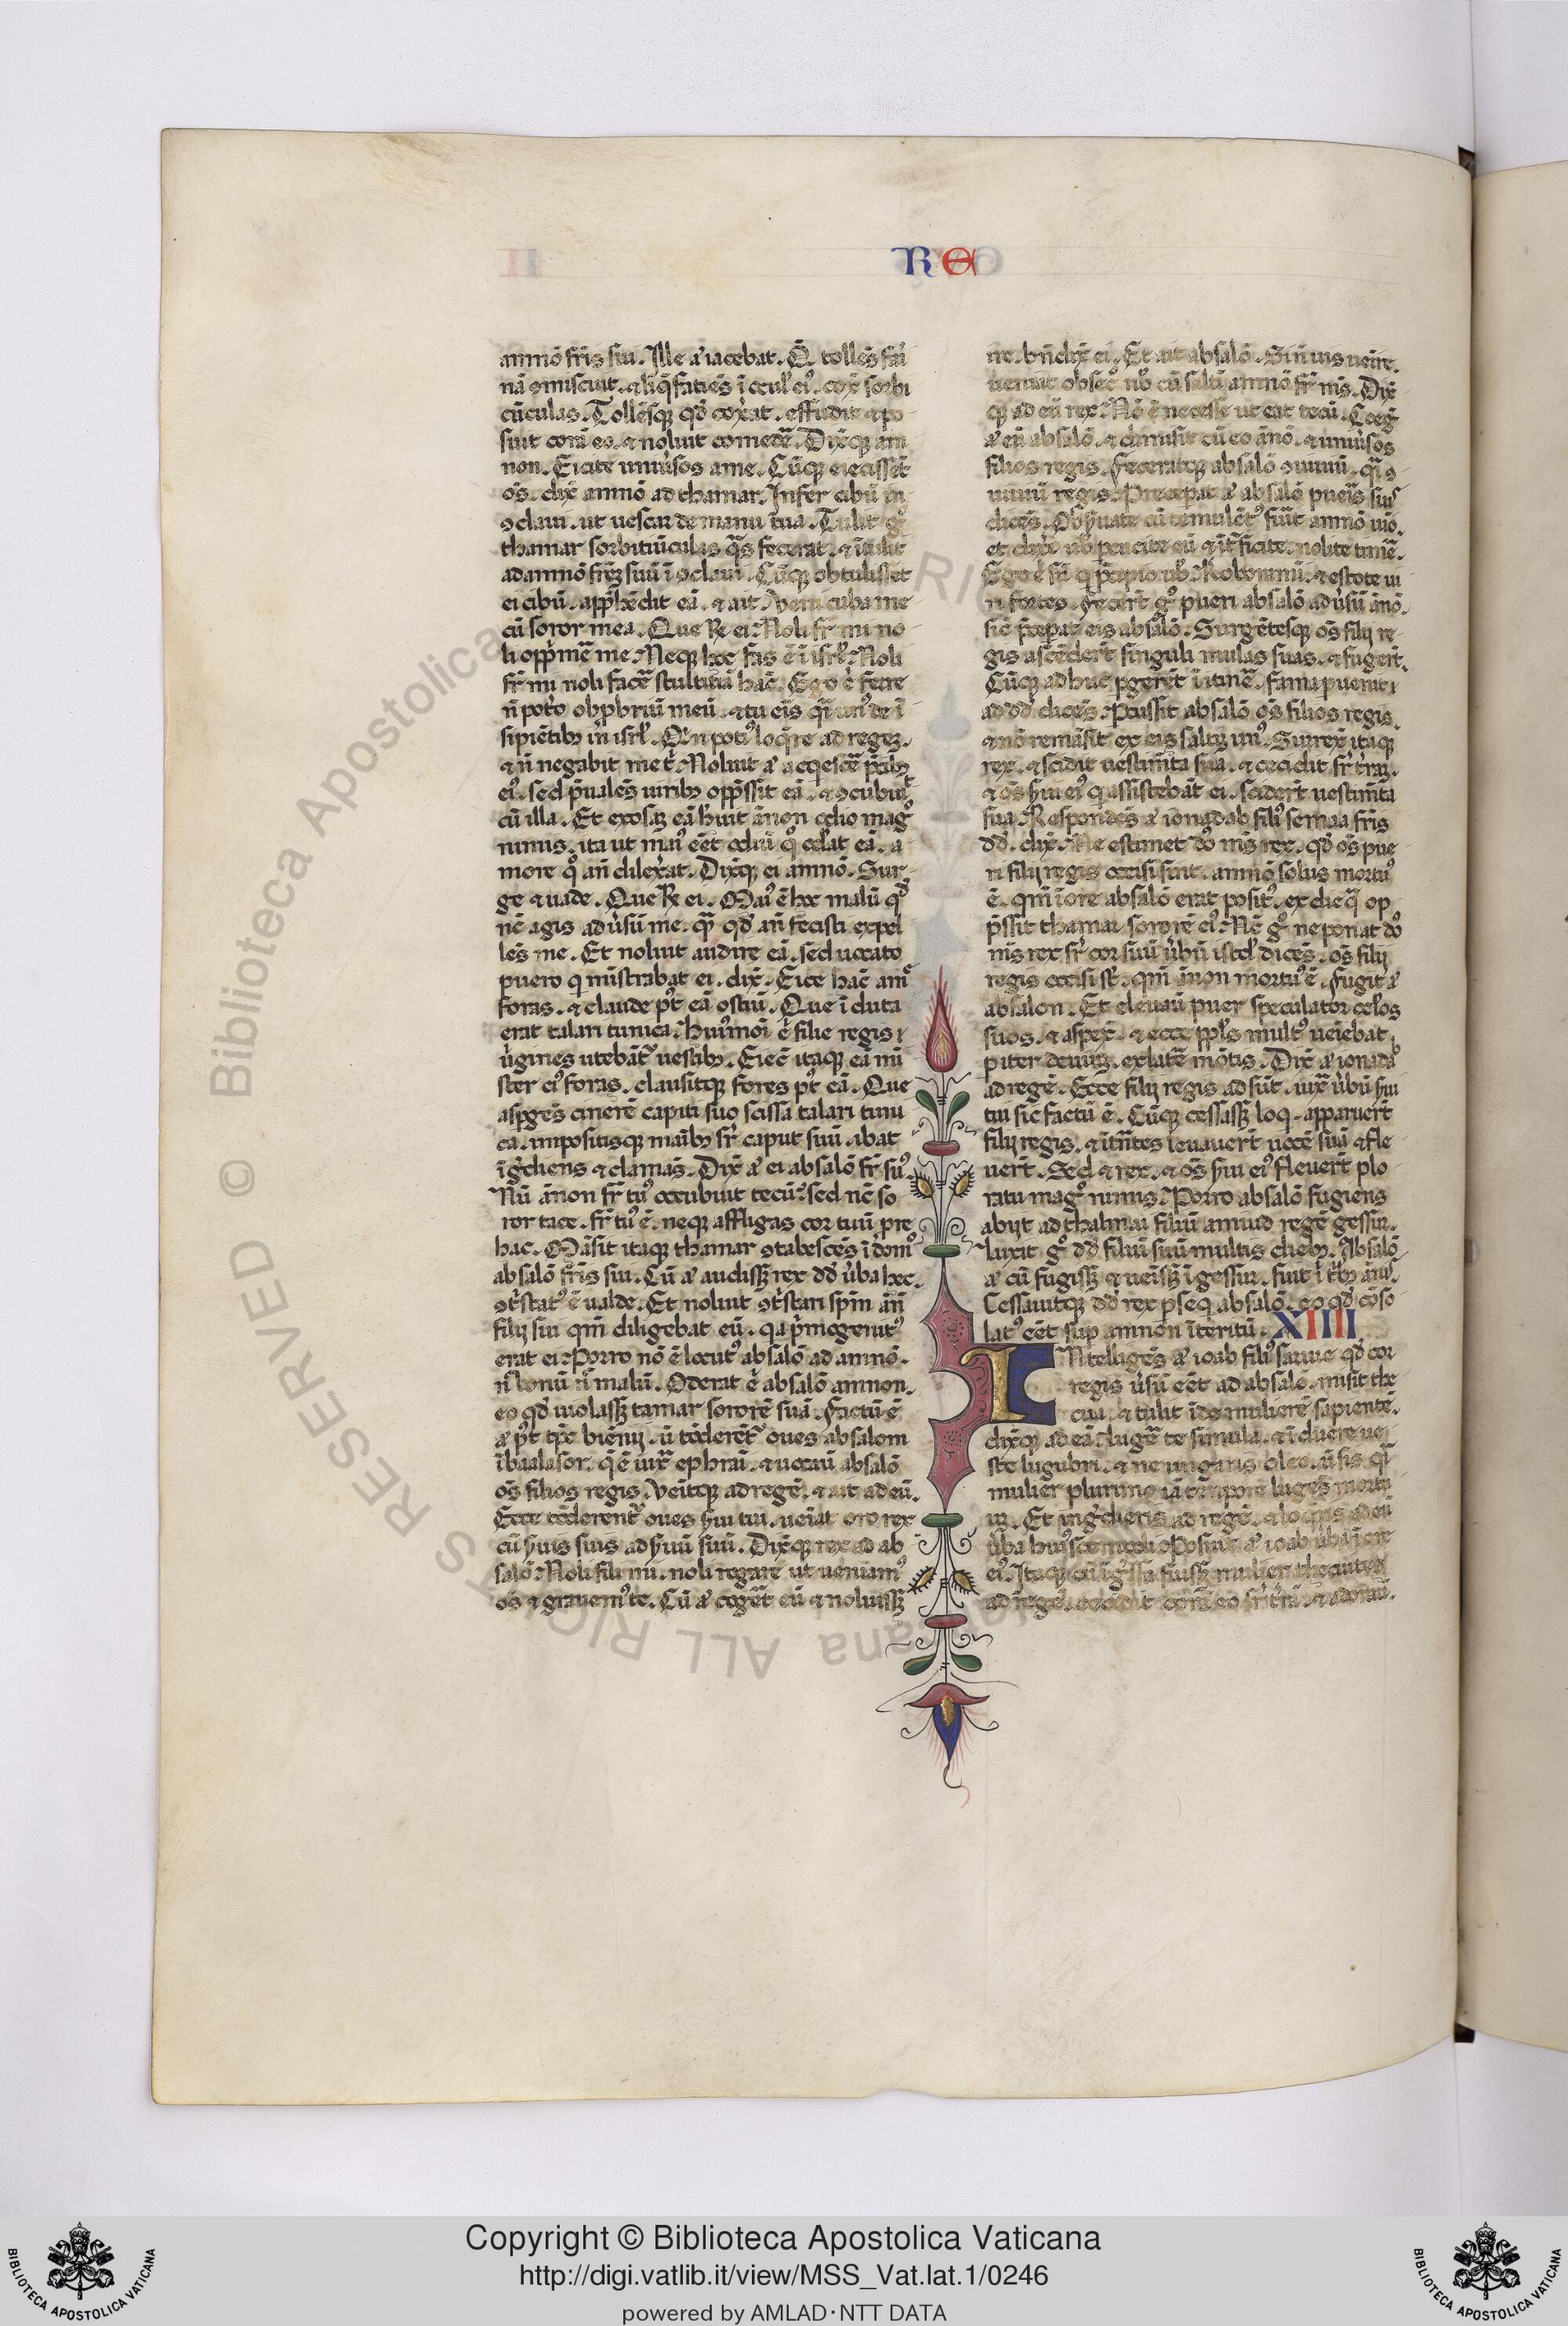 RE
amnō fr̄is sui. Ille aͭ iacebat. Q̄ tolles fari
nā ꝯmiscuit. ⁊ liq̄faciēs ī ocul' eiꝰ. cox̄ sorbi
cūculas. Tollēsqꝫ qd̄ cox̓at. effudit ⁊ po
suit corā eo. ⁊ noluit comedē. Dix̄qꝫ am
non. Eicite univ̓sos a me. Cūqꝫ eiecissēt
oēs. dix̄ amnō ad thamar. Infer cibū in
ꝯclavi. ut vescar de manu tua. Tulit gͦ
thamar sorbitiūculas q̄s fecerat. ⁊ ītulit
ad amnō fr̄eꝫ suū ī ꝯclavi. Cūqꝫ obtulisset
ei cibū. app̄hēdit eā. ⁊ ait. Veni cuba me
cū soror mea. Que R̄ ei. Noli fr̄ mi no
li opp̓mē me. Neqꝫ hoc fas ē ī isrl̓. Noli
fr̄ mi noli facē stultitiā hāc. Ego ē ferre
n̄ pot̓o obp̱briū meū. ⁊ tu eis q̄i unꝰ de ī
sipiētibꝫ in isrl̓. Qn̄ potiꝰ loq̄re ad regeꝫ.
⁊ n̄ negabit me t̓. Noluit aͭ acq̓escē p̓cibꝫ
eiꝰ. sed p̄valēs viribꝫ opp̄ssit eā. ⁊ ꝯcubuit
cū illa. Et exosaꝫ eā h̓uit ānon odio magͦ
nimis. ita ut maiꝰ eēt odiū qͦ od̓at eā. a
more qͦ an̄ dilex̓at. Dix̄qꝫ ei amnō. Sur
ge ⁊ vade. Que R̄ ei. Maiꝰ ē hoc malū qd̄
nc̄ agis adv̓sū me. q̄ꝫ qd̄ an̄ fecisti expel
lēs me. Et noluit audire eā. sed vocato
puero q̓ mīstrabat ei. dix̄. Eice hāc a mͤ
foras. ⁊ claude pꝰt eā ostiū. Que īduta
erat talari tunica. Huiꝰmōi ē filie regis
v̓gines utebāt᷑ vestibꝫ. Eiec̄ itaqꝫ eā mi
ster eiꝰ foras. clausitqꝫ fores pꝰt eā. Que
asp̱gēs cinerē capiti suo scissā talari tuni
ca. impositisqꝫ manibꝫ sr̄ caput suū. ibat
īg̓diens ⁊ clamās. Dix̄ aͭ ei absalō fr̄ suꝰ.
Nū ānon fr̄ tuꝰ ꝯcubuit tecū? sed nc̄ so
ror tace. fr̄ tuꝰ ē. neqꝫ affligas cor tuū pro
hac. Māsit itaqꝫ thamar ꝯtabescēs ī domͦ
absalō fr̄is sui. Cū aͭ audissꝫ rex dd̄ v̓ba hec.
ꝯt̓statꝰ ē valde. Et noluit ꝯt̓stari sp̄m ān̄
filij sui qm̄ diligebat eū. q̓a p̓mogenitꝰ
erat ei. Porro nō ē locutꝰ absalō ad amnō.
n̄ bonū n̄ malū. Oderat ē absalō amnon.
eo qd̄ violassꝫ tamar sororē suā. Factū ē
aͭ pꝰt tp̄s biēnij. ū tōderēt᷑ oves absalom
ī baalasor. q̄ ē iux̄ ephraī. ⁊ vocavī absalō
oēs filios regis. Venitqꝫ ad regē. ⁊ ait ad eū.
Ecce tōderent᷑ oves s̓vi tui. veniat oro rex
cū s̓vis suis ad s̓vū suū. Dix̄qꝫ rex ad ab
salō. Noli fili mi. noli rogare ut veniamꝰ
oēs ⁊ gravemꝰ te. Cū aͭ cog̓et eū ⁊ noluissꝫ
ire. bn̄dix̄ ei. Et ait absalō. Si nō vis venire.
veniat obsecͦ nob̓ cū saltī amnō fr̄ ms̄. Dix̄
qꝫ ad eū rex. Nō ē necesse ut eat tecū. Coeg̓
aͭ eū absalō. ⁊ dimisit cū eo ānō. ⁊ univ̓sos
filios regis. Feceratqꝫ absalō ꝯviviū. q̄i ꝯ
viviū regis. Precep̱at aͭ absalō pueris suis
dicēs. Obs̓vate cū temulētꝰ fūit amnō vīo.
et dix̓o vob̓ p̱cutite eū ⁊ īt̓ficite. nolite timē.
Ego ē sū q̓ p̓cipio vob̓. Roboramī. ⁊ estote vi
ri fortes. Fecer̄t gͦ pueri absalō adv̓sū ānō.
sic̄ p̓cep̱at eis absalō. Surgētesqꝫ oēs filij re
gis ascēder̄t singuli mulas suas. ⁊ fuger̄t.
Cūqꝫ adhuc p̱gerēt ī itinē. fama p̱venit
ad dd̄ dicēs. P̱cussit absalō oēs filios regis.
⁊ nō remāsit ex eis saltꝫ unꝰ. Surrex̄ itaqꝫ
rex. ⁊ scidit vestim̄ta sua. ⁊ cecidit sr̄ t̓raꝫ.
⁊ oēs s̓vi eiꝰ q̓ assistebāt ei. scider̄t vestim̄ta
sua. Respondēs aͭ ionadab filiꝰ semaa fr̄is
dd̄. dix̄. Ne estimet dō ms̄ rex. qd̄ oēs pue
ri filij regis occisi sint. amnō solus mortuꝰ
ē. qm̄ ī ore absalō erat positꝰ. ex die q̄ op
p̄ssit thamar sororē eiꝰ. Nc̄ gͦ ne ponat dō
ms̄ rex sr̄ cor suū v̓bū istud dicēs. oēs filij
regis occisi st̄. qm̄ ānon mortuꝰ ē. Fugit aͭ
absalon. Et elevavī puer speculator oculos
suos. ⁊ aspex̄. ⁊ ecce ppl̓s multꝰ veniebat
p̱ iter deviuꝫ. ex latē mōtis. Dix̄ aͭ ionadab
ad regē. Ecce filij regis adsūt. iux̄ v̓bū s̓vi
tui sic factū ē. Cūqꝫ cessassꝫ loq̓. apparuer̄t
filij regis. ⁊ īt̄ntes levaver̄t vocē suā ⁊ fle
ver̄t. Sed ⁊ rex. ⁊ oēs s̓vi eiꝰ flever̄t plo
ratu magͦ nimis. Porro absalō fugiens
abijt ad thalmai filiū amiud regē gessur.
Luxit gͦ dd̄ filiū suū multis diebꝫ. Absalō
aͭ cū fugissꝫ ⁊ venissꝫ ī gessur. fuit ī t̓bꝫ ānis.
Cessavitqꝫ dd̄ rex p̱seq̓ absalō. eo qd̄ cōso
latꝰ eēt sup̱ amnon īteritū. XIIII
INtelligēs aͭ ioab filiꝰ sarvie qd̄ cor
regis v̓sū eēt ad absalō. misit the
cuā. ⁊ tulit īde mulierē sapientē.
dix̄qꝫ ad eā. Lugē te simula. ⁊ īduere ve
ste lugubri. ⁊ ne ungaris oleo. ut sis q̄i
mulier plurimo iā tempore lugēs mortu
uꝫ. Et ing̓dieris ad regē. ⁊ loq̓ris ad eū
v̓ba huiꝰscemodi. Posuit aͭ ioab v̓ba ī ore
eiꝰ. Itaqꝫ cū īg̓ssa fuissꝫ mulier thecuites
ad regē. cecidit corā eo sr̄ t̓rā. ⁊ adoravī.
Copyright © Biblioteca Apostolica Vaticana
http://digi.vatlib.it/view/MSS_Vat.lat.1/0246
powered by AMLAD·NTT DATA